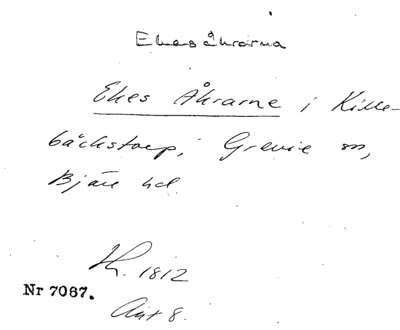 Ekesåkrarna
Ekes Åkrarne i Kille-
bäckstorp, Grevie sn,
Bjäre hd.
Kt. 1812
Nr 7087.
Akt 8.